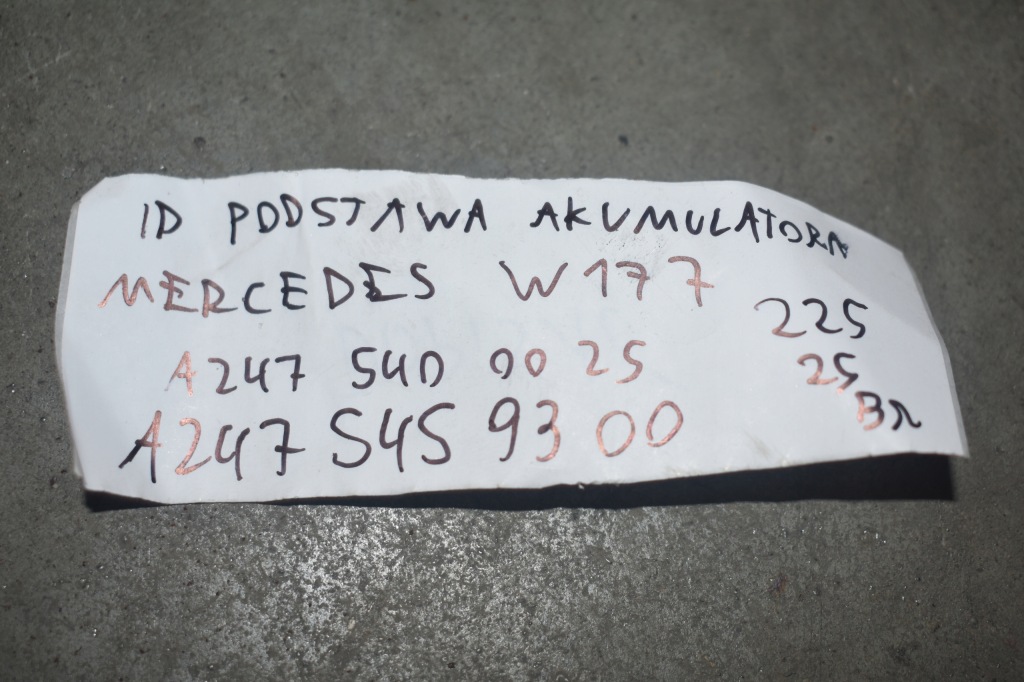 ID PODSTAWA AKUMULATORA
MERCEDES W177
A247 540 00 25
A247 545 93 00
225
25
BR